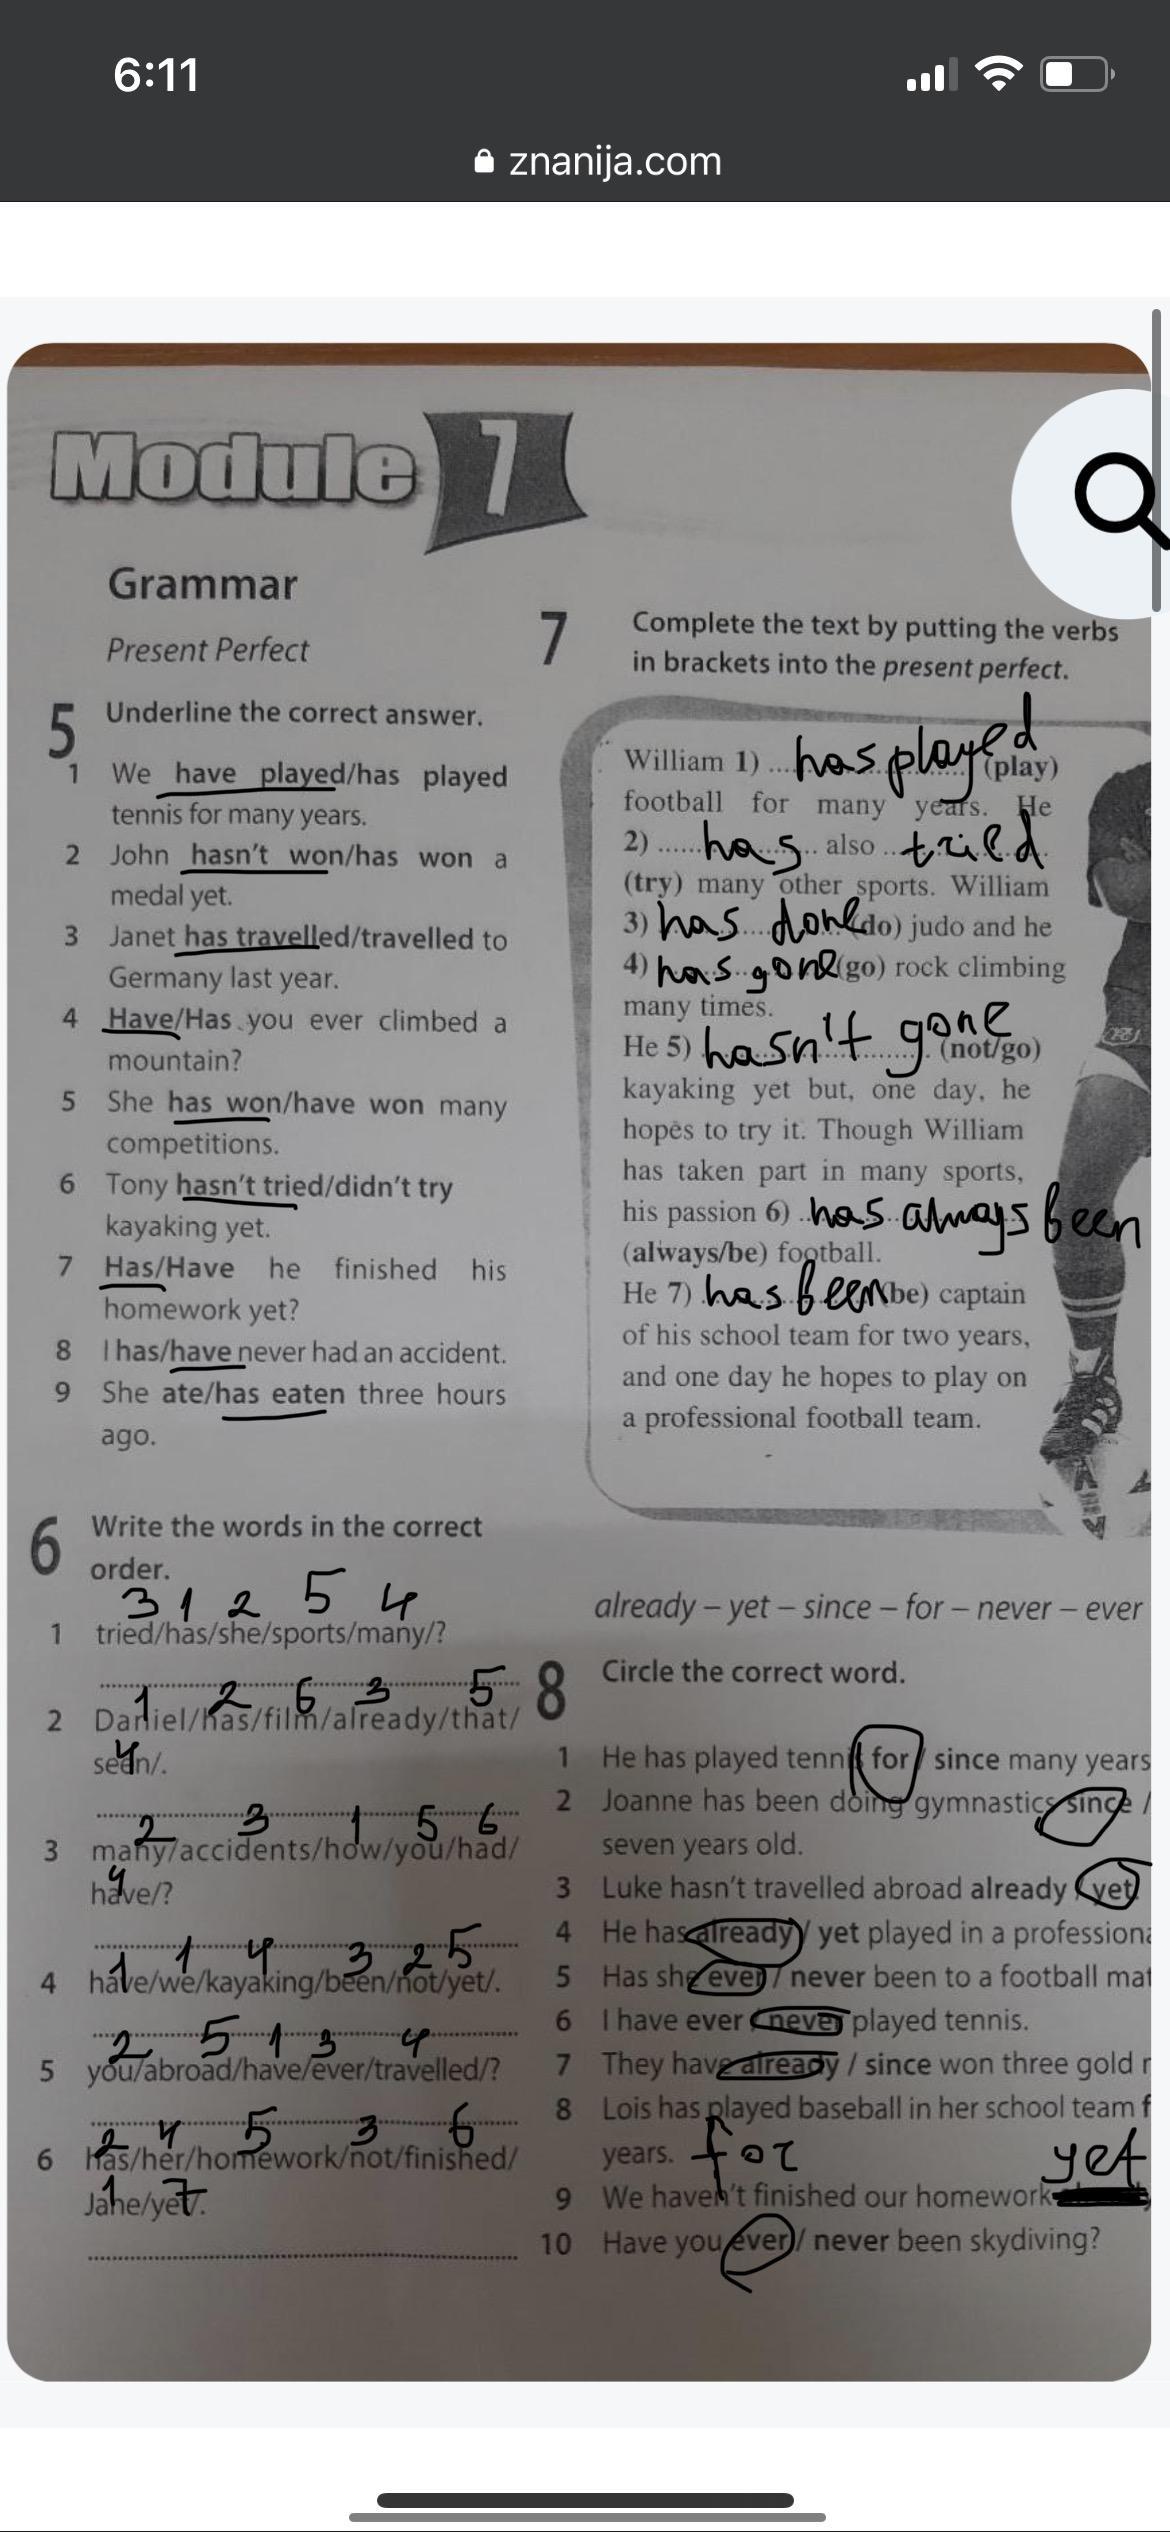 6:11
znanija.com
Module 7
Grammar
Present Perfect
5 Underline the correct answer.
1 We have played/has played
tennis for many years.
2 John hasn't won/has won a
medal yet.
3 Janet has travelled/travelled to
Germany last year.
4 Have/Has you ever climbed a
mountain?
5 She has won/have won many
competitions.
6 Tony hasn't tried/didn't try
kayaking yet.
7 Has/Have he finished his
homework yet?
8 I has/have never had an accident.
9 She ate/has eaten three hours
ago.
6 Write the words in the correct
order.
3 1 2 5 4
1 tried/has/she/sports/many/?
1 2 6 3 5
2 Daniel/has/film/already/that/
4
seen/.
2 3 1 5 6
3 many/accidents/how/you/had/
4
have/?
1 1 4 3 2 5
4 have/we/kayaking/been/not/yet/.
2 5 1 3 4
5 you/abroad/have/ever/travelled/?
2 4 5 3 6
6 has/her/homework/not/finished/
1 7
Jane/yet/.
7 Complete the text by putting the verbs
in brackets into the present perfect.
William 1) has played (play)
football for many years. He
2) has also tried
(try) many other sports. William
3) has done (do) judo and he
4) has gone (go) rock climbing
many times.
He 5) hasn't gone (not/go)
kayaking yet but, one day, he
hopes to try it. Though William
has taken part in many sports,
his passion 6) has always been
(always/be) football.
He 7) has been (be) captain
of his school team for two years,
and one day he hopes to play on
a professional football team.
already – yet – since – for – never – ever
8 Circle the correct word.
1 He has played tennis for / since many years
2 Joanne has been doing gymnastics since /
seven years old.
3 Luke hasn't travelled abroad already / yet.
4 He has already / yet played in a professiona
5 Has she ever / never been to a football mat
6 I have ever / never played tennis.
7 They have already / since won three gold
8 Lois has played baseball in her school team f
years. for
yet
9 We haven't finished our homework
10 Have you ever / never been skydiving?